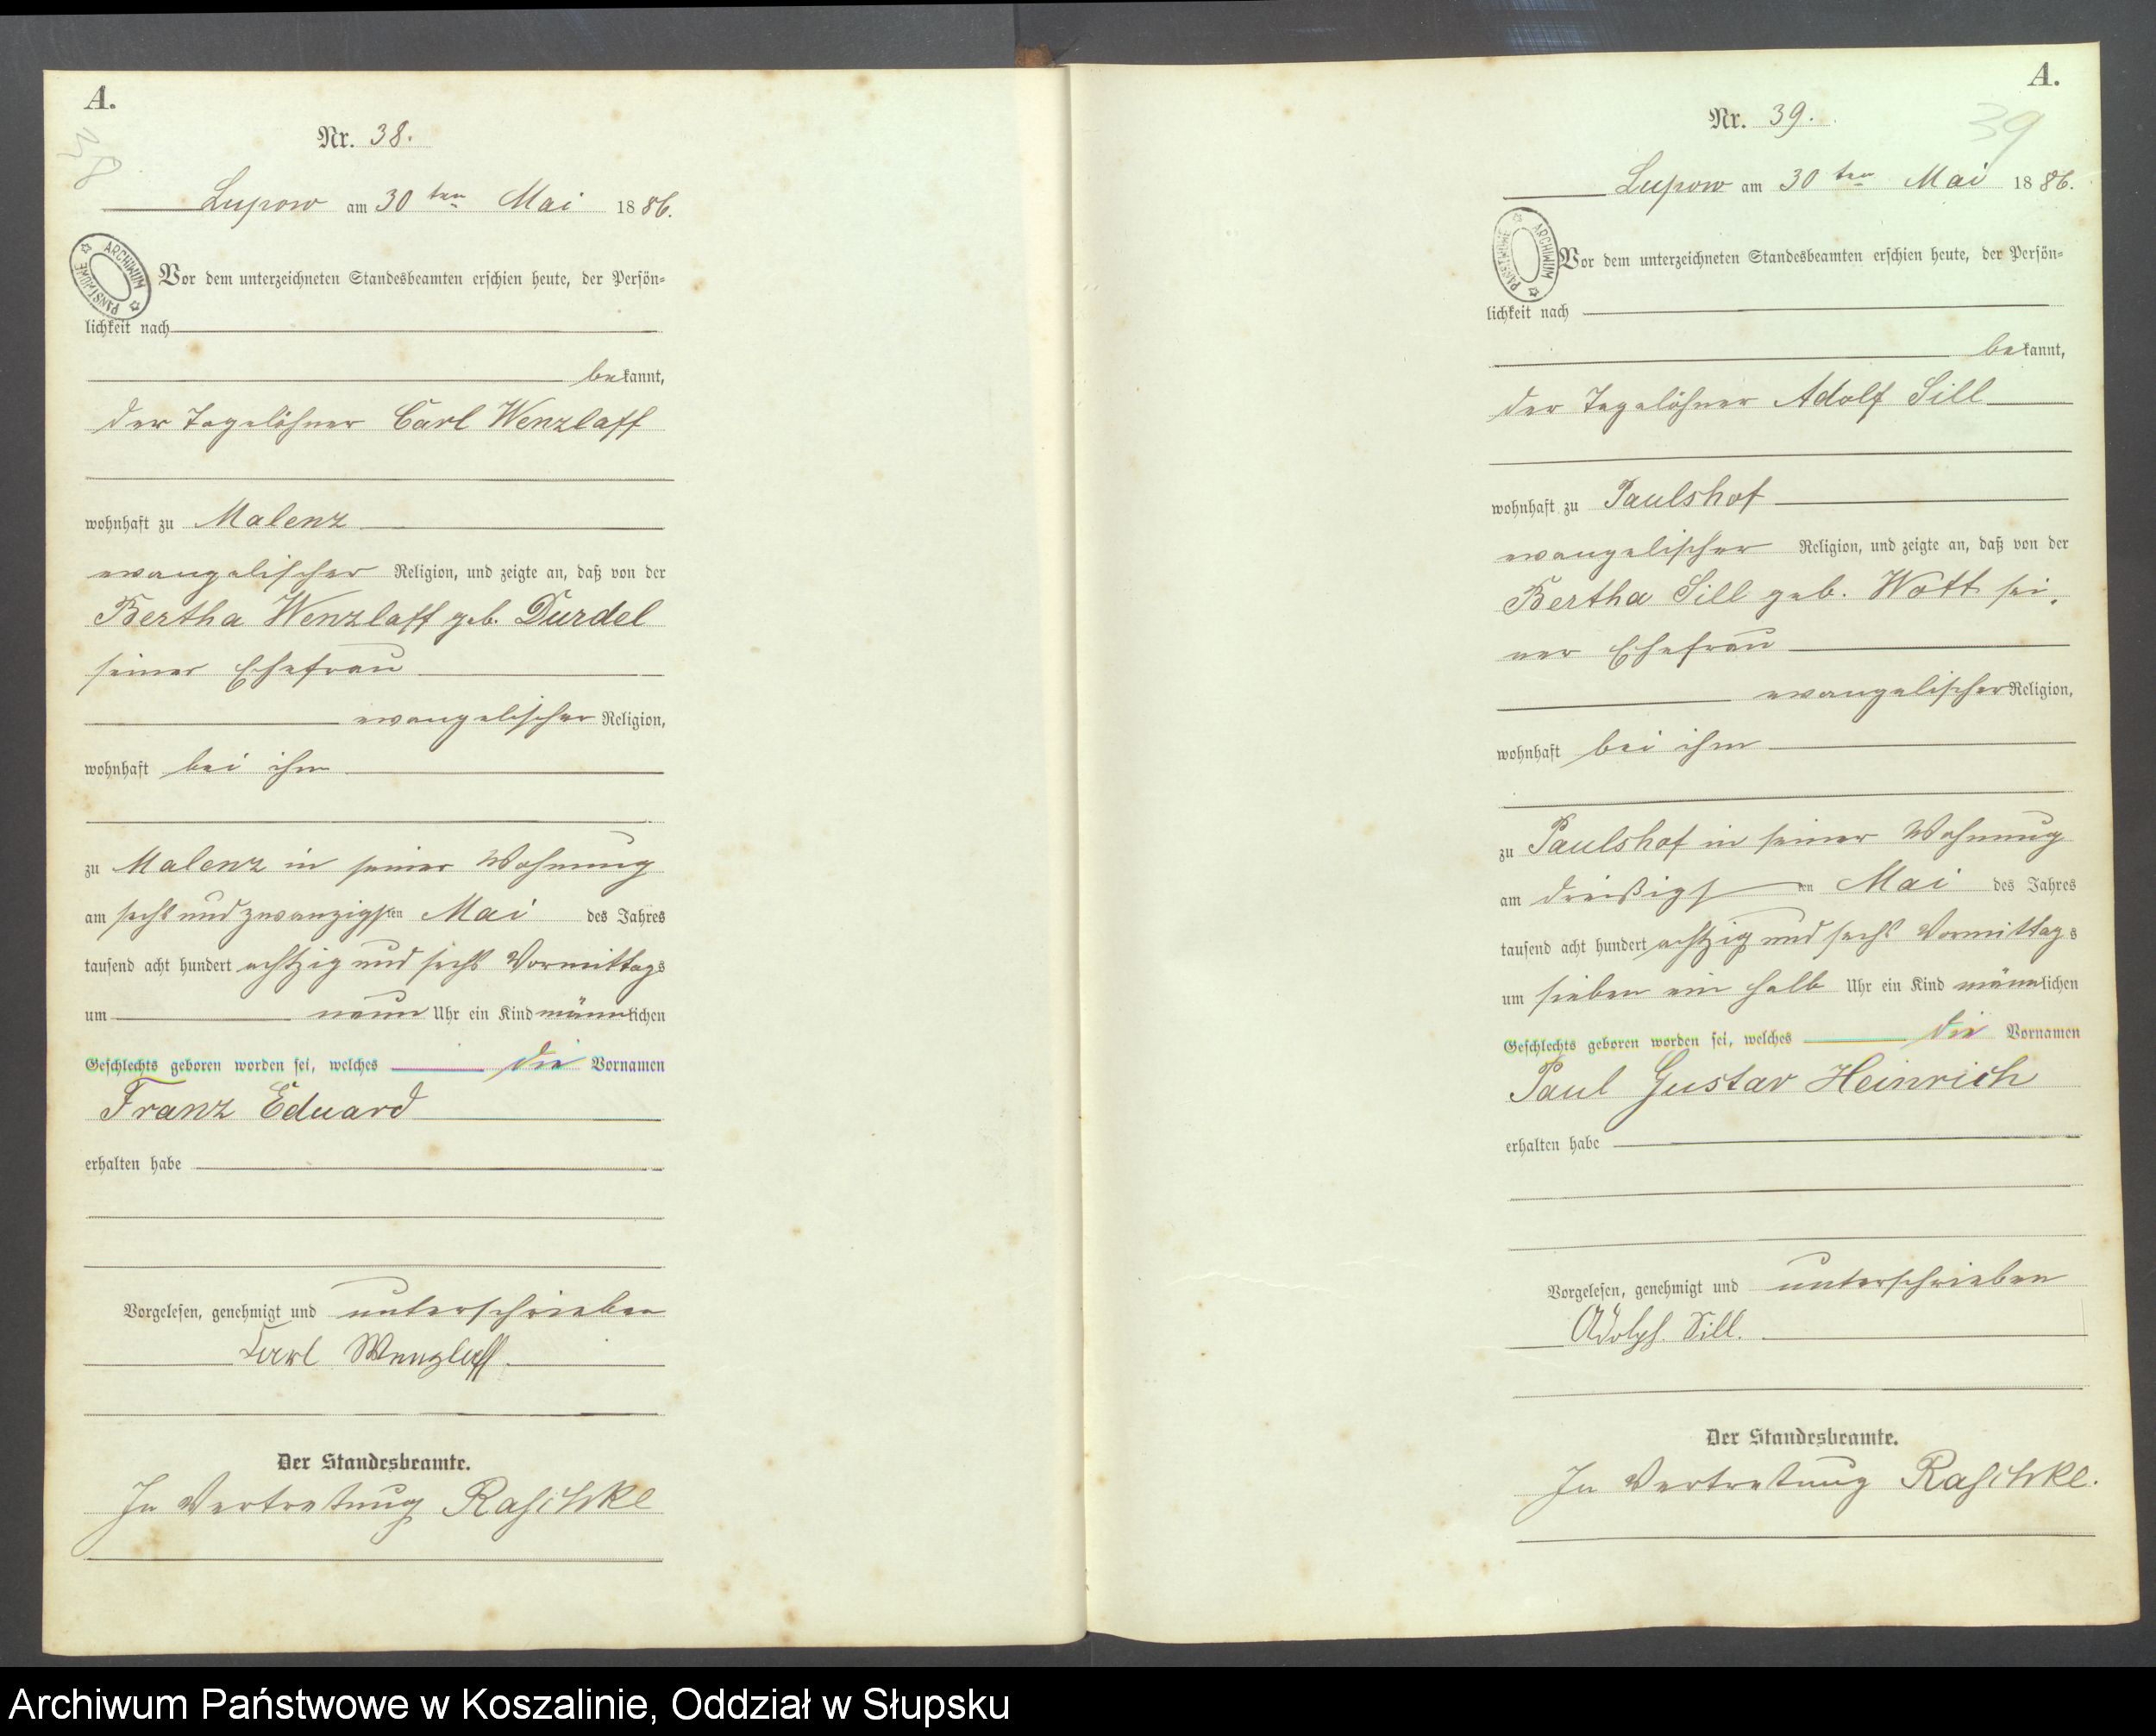 A.
38
Nr. 38.
Lupow am 30 ten Mai 1886.
ARCHIWUM PAŃSTWOWE
Vor dem unterzeichneten Standesbeamten erschien heute, der Persön-
lichkeit nach
bekannt,
der Tagelöhner Carl Wenzlaff
wohnhaft zu Malenz
evangelischer Religion, und zeigte an, daß von der
Bertha Wenzlaff geb. Durdel
seiner Ehefrau
evangelischer Religion,
wohnhaft bei ihm
zu Malenz in seiner Wohnung
am sechs und zwanzigsten Mai des Jahres
tausend acht hundert achtzig und sechs Vormittags
um neun Uhr ein Kind männlichen
Geschlechts geboren worden sei, welches die Vornamen
Franz Eduard
erhalten habe
Vorgelesen, genehmigt und unterschrieben
Carl Wenzlaff
Der Standesbeamte.
In Vertretung Raschke
A.
39
Nr. 39.
Lupow am 30 ten Mai 1886.
ARCHIWUM PAŃSTWOWE
Vor dem unterzeichneten Standesbeamten erschien heute, der Persön-
lichkeit nach
bekannt,
der Tagelöhner Adolf Sill
wohnhaft zu Paulshof
evangelischer Religion, und zeigte an, daß von der
Bertha Sill geb. Wott sei,
ner Ehefrau
evangelischer Religion,
wohnhaft bei ihm
zu Paulshof in seiner Wohnung
am dreißigsten Mai des Jahres
tausend acht hundert achtzig und sechs Vormittags
um sieben ein halb Uhr ein Kind männlichen
Geschlechts geboren worden sei, welches die Vornamen
Paul Gustav Heinrich
erhalten habe
Vorgelesen, genehmigt und unterschrieben
Adolph Sill.
Der Standesbeamte.
In Vertretung Raschke.
Archiwum Państwowe w Koszalinie, Oddział w Słupsku